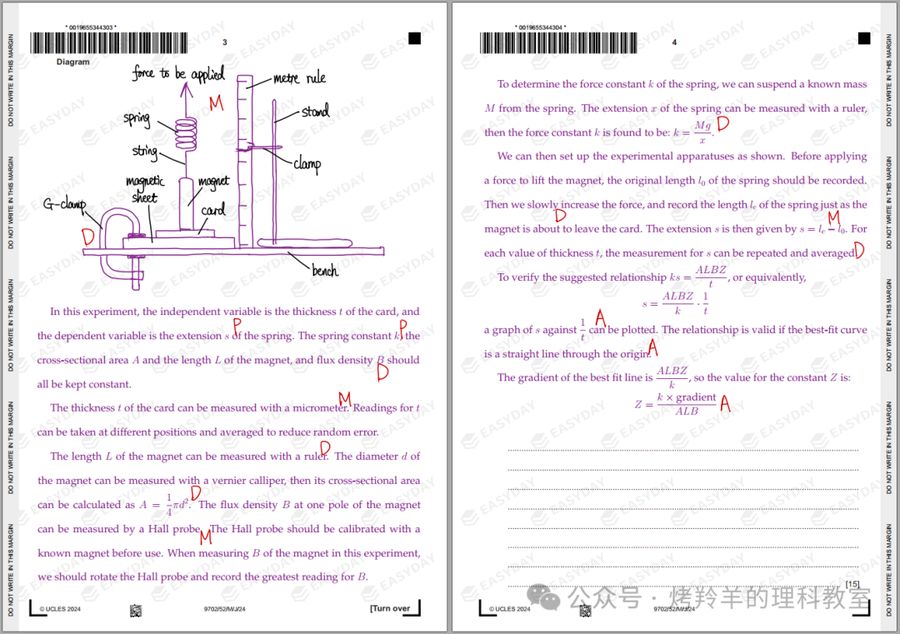 DO NOT WRITE IN THIS MARGIN
DO NOT WRITE IN THIS MARGIN
DO NOT WRITE IN THIS MARGIN
DO NOT WRITE IN THIS MARGIN
DO NOT WRITE IN THIS MARGIN
* 0019655344303 *
3
Diagram
force to be applied
M
metre rule
spring
stand
string
clamp
magnetic sheet
magnet
G-clamp
card
D
bench
In this experiment, the independent variable is the thickness t of the card, and
P P
the dependent variable is the extension s of the spring. The spring constant k, the
cross-sectional area A and the length L of the magnet, and flux density B should
D
all be kept constant.
M
The thickness t of the card can be measured with a micrometer. Readings for t
can be taken at different positions and averaged to reduce random error.
D
The length L of the magnet can be measured with a ruler. The diameter d of
the magnet can be measured with a vernier calliper, then its cross-sectional area
D
can be calculated as A = 1/4 πd². The flux density B at one pole of the magnet
can be measured by a Hall probe. The Hall probe should be calibrated with a
M
known magnet before use. When measuring B of the magnet in this experiment,
we should rotate the Hall probe and record the greatest reading for B.
© UCLES 2024
9702/52/M/J/24
[Turn over
* 0019655344304 *
4
To determine the force constant k of the spring, we can suspend a known mass
M from the spring. The extension x of the spring can be measured with a ruler,
then the force constant k is found to be: k = Mg/x. D
We can then set up the experimental apparatuses as shown. Before applying
a force to lift the magnet, the original length l₀ of the spring should be recorded.
Then we slowly increase the force, and record the length lₑ of the spring just as the
D M
magnet is about to leave the card. The extension s is then given by s = lₑ − l₀. For
each value of thickness t, the measurement for s can be repeated and averaged. D
To verify the suggested relationship ks = ALBZ/t, or equivalently,
s = ALBZ/k · 1/t
A
a graph of s against 1/t can be plotted. The relationship is valid if the best-fit curve
is a straight line through the origin. A
The gradient of the best fit line is ALBZ/k, so the value for the constant Z is:
Z = k × gradient/ALB A
[15]
© UCLES 2024
9702/52/M/J/24
DO NOT WRITE IN THIS MARGIN
DO NOT WRITE IN THIS MARGIN
DO NOT WRITE IN THIS MARGIN
DO NOT WRITE IN THIS MARGIN
DO NOT WRITE IN THIS MARGIN
EASYDAY
公众号 · 烤羚羊的理科教室